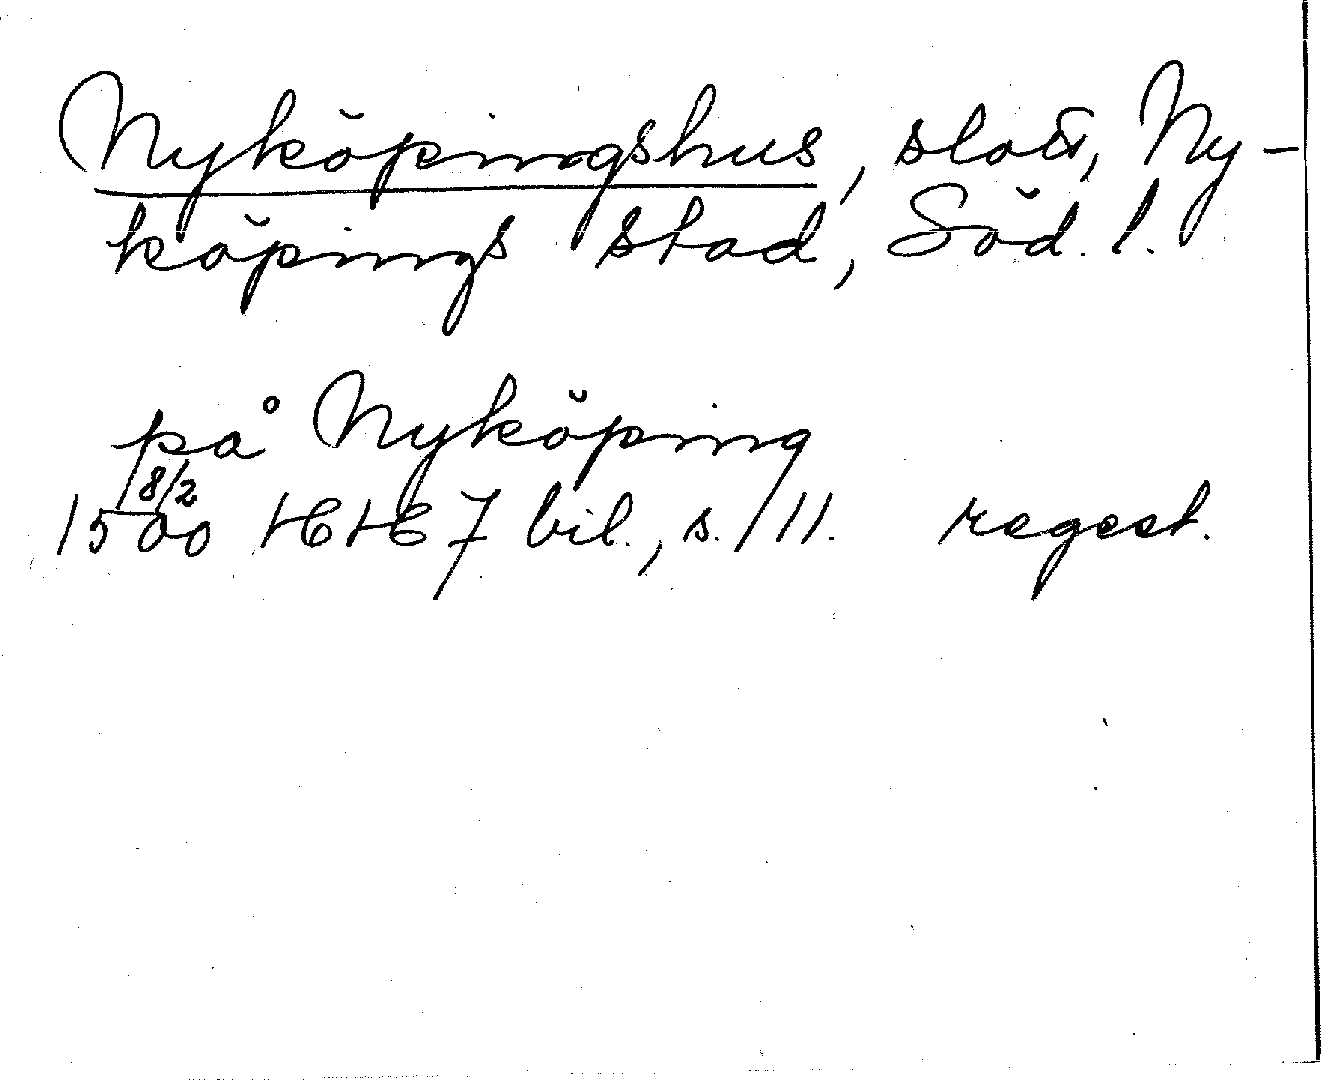 Nyköpingshus, slott, Ny-
köpings stad, Söd. l.
på Nyköping
1500 8/2 HH 7 bil., s. 111. regest.